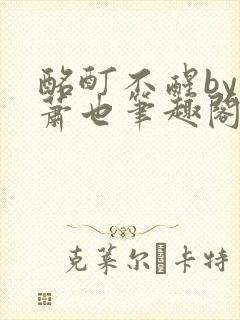 酩酊不醒by
萧也笔趣阁
克莱尔·卡特